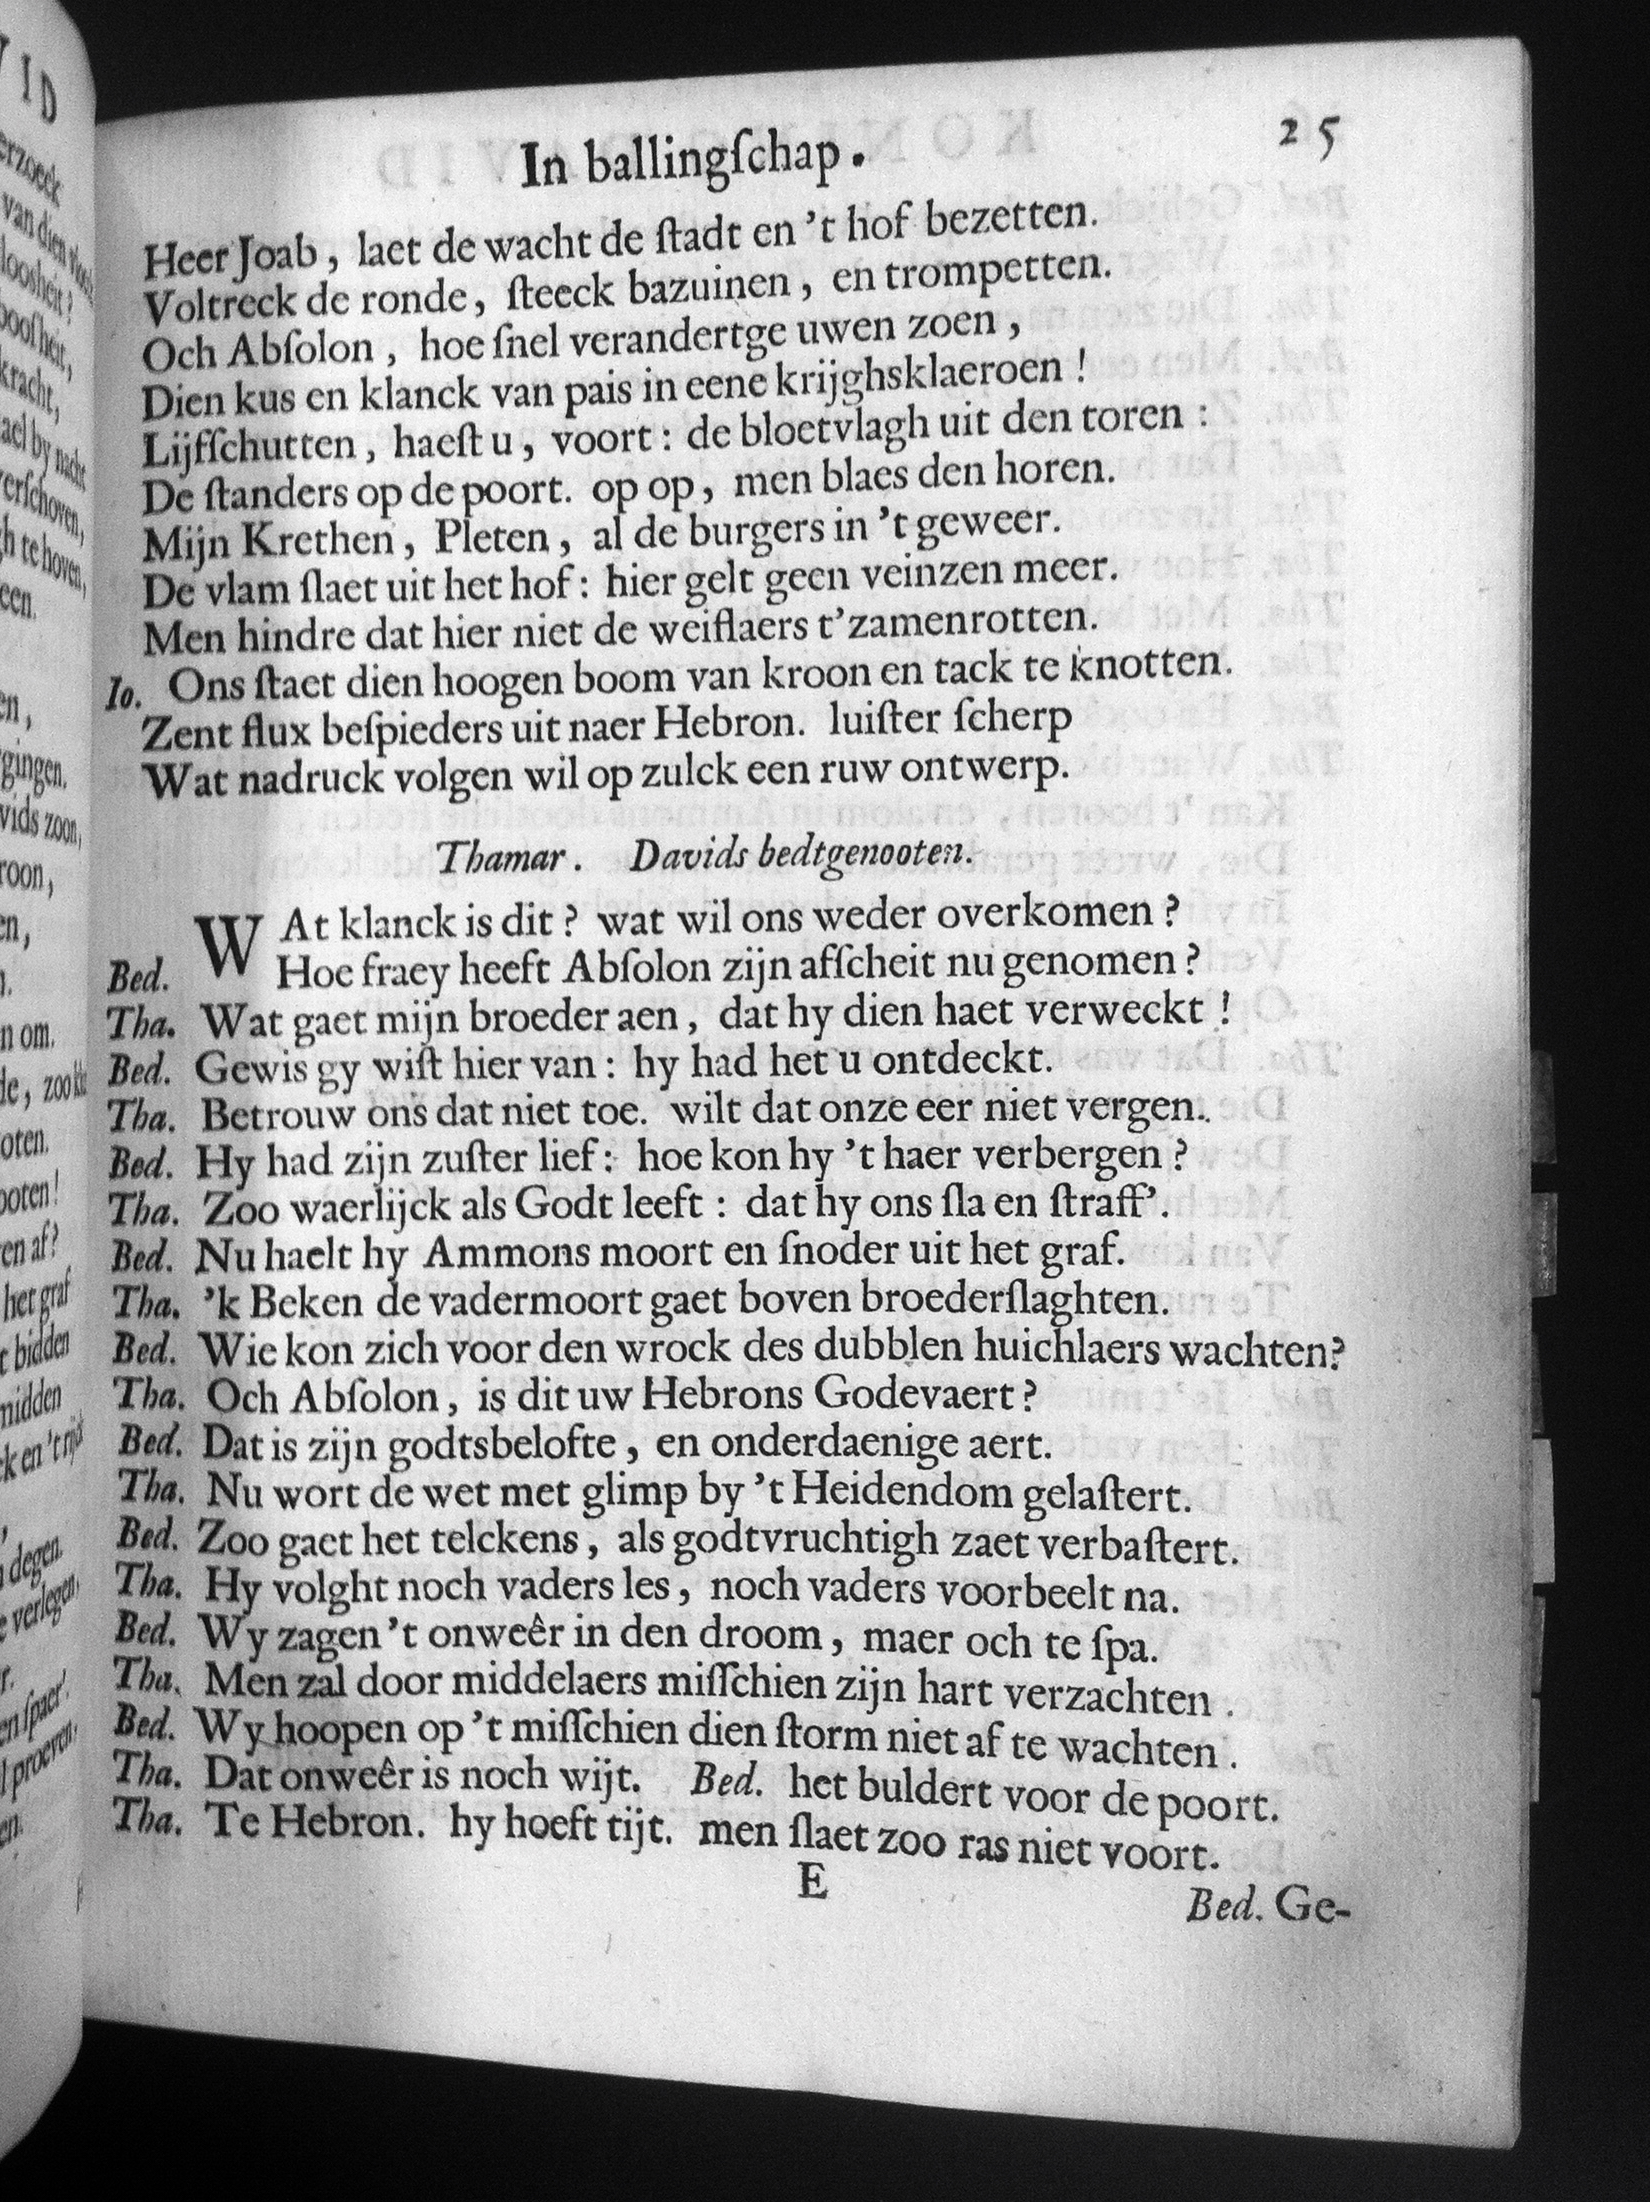 In ballingſchap. 25
Heer Joab, laet de wacht de ſtadt en 't hof bezetten.
Voltreck de ronde, ſteeck bazuinen, en trompetten.
Och Abſolon, hoe ſnel verandertge uwen zoen,
Dien kus en klanck van pais in eene krijghsklaeroen!
Lijfſchutten, haeſt u, voort: de bloetvlagh uit den toren:
De ſtanders op de poort. op op, men blaes den horen.
Mijn Krethen, Pleten, al de burgers in 't geweer.
De vlam ſlaet uit het hof: hier gelt geen veinzen meer.
Men hindre dat hier niet de weiflaers t'zamenrotten.
Io. Ons ſtaet dien hoogen boom van kroon en tack te knotten.
Zent flux beſpieders uit naer Hebron. luiſter ſcherp
Wat nadruck volgen wil op zulck een ruw ontwerp.
Thamar. Davids bedtgenooten.
WAt klanck is dit? wat wil ons weder overkomen?
Bed. Hoe fraey heeft Abſolon zijn afſcheit nu genomen?
Tha. Wat gaet mijn broeder aen, dat hy dien haet verweckt!
Bed. Gewis gy wiſt hier van: hy had het u ontdeckt.
Tha. Betrouw ons dat niet toe. wilt dat onze eer niet vergen.
Bed. Hy had zijn zuſter lief: hoe kon hy 't haer verbergen?
Tha. Zoo waerlijck als Godt leeft: dat hy ons ſla en ſtraff'.
Bed. Nu haelt hy Ammons moort en ſnoder uit het graf.
Tha. 'k Beken de vadermoort gaet boven broederſlaghten.
Bed. Wie kon zich voor den wrock des dubblen huichlaers wachten?
Tha. Och Abſolon, is dit uw Hebrons Godevaert?
Bed. Dat is zijn godtsbelofte, en onderdaenige aert.
Tha. Nu wort de wet met glimp by 't Heidendom gelaſtert.
Bed. Zoo gaet het telckens, als godtvruchtigh zaet verbaſtert.
Tha. Hy volght noch vaders les, noch vaders voorbeelt na.
Bed. Wy zagen 't onweêr in den droom, maer och te ſpa.
Tha. Men zal door middelaers miſſchien zijn hart verzachten.
Bed. Wy hoopen op 't miſſchien dien ſtorm niet af te wachten.
Tha. Dat onweêr is noch wijt. Bed. het buldert voor de poort.
Tha. Te Hebron. hy hoeft tijt. men ſlaet zoo ras niet voort.
E
Bed. Ge-